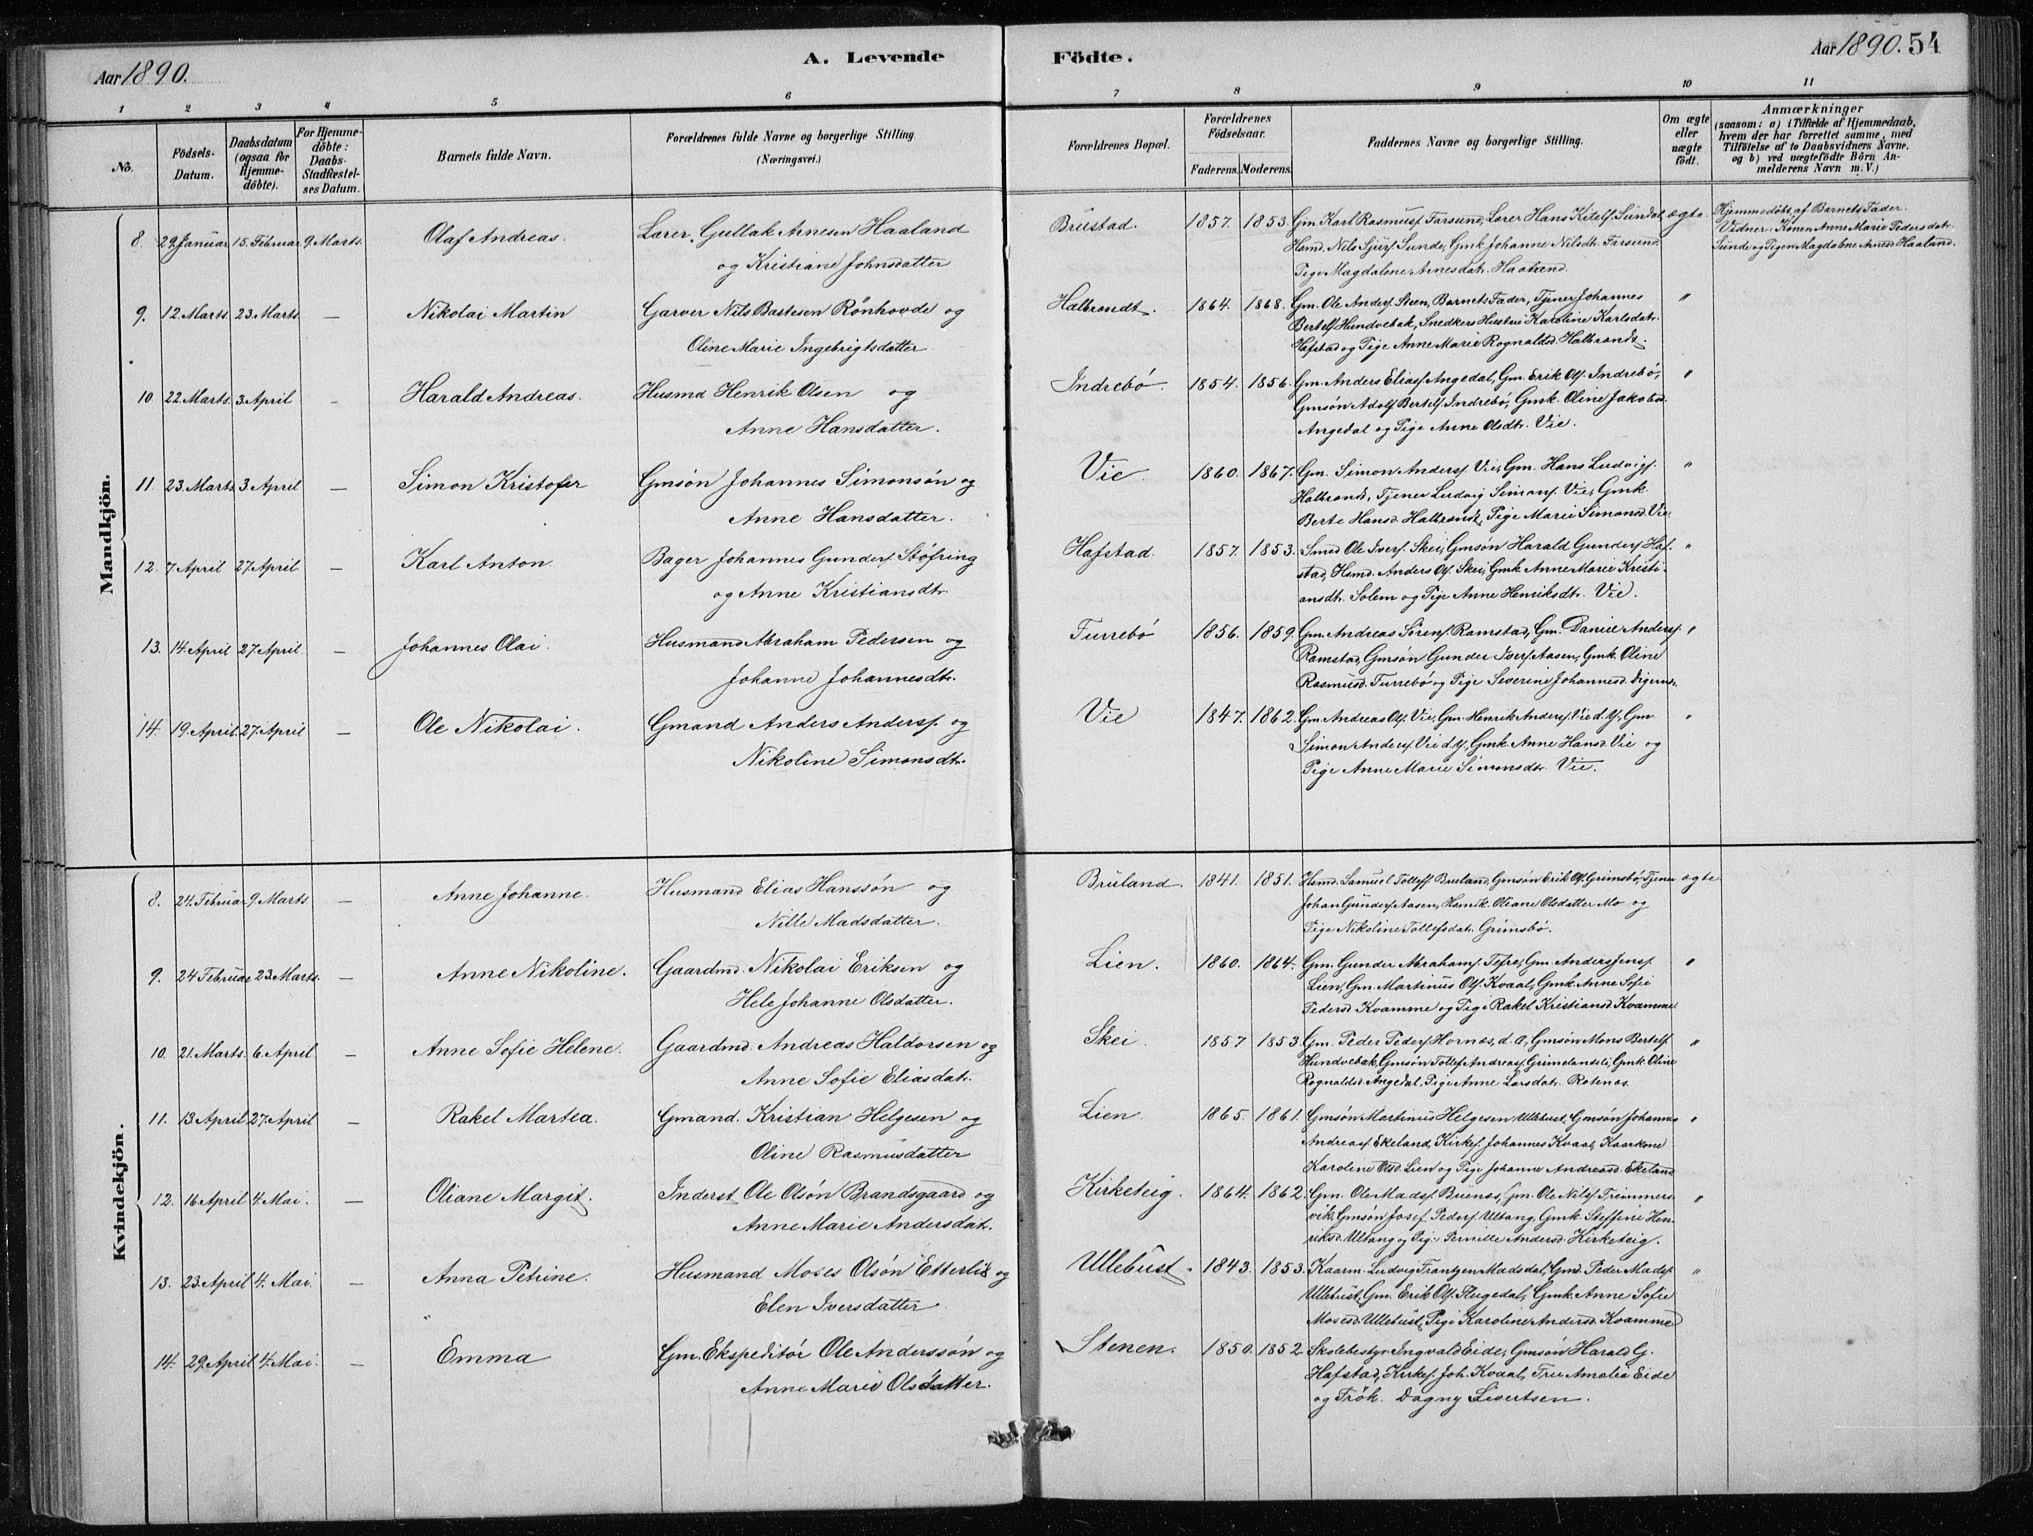 Aar 1890. A. Levende Födte. Aar 1890. 54
1 2 3 4 5 6 7 8 9 10 11
No. Födsels-Datum. Daabsdatum (ogsaa for Hjemmedöbte). For Hjemmedöbte: Daabs-Stadfæstelses Datum. Barnets fulde Navn. Forældrenes fulde Navne og borgerlige Stilling. (Næringsvei.) Forældrenes Bopæl. Forældrenes Födselsaar. Faderens. Moderens. Faddernes Navne og borgerlige Stilling. Om ægte eller uægte födt. Anmærkninger (saasom: a) i Tilfælde af Hjemmedaab, hvem der har forrettet samme, med Tilföielse af to Daabsvidners Navne, og b) ved uægtefödte Börn Anmelderens Navn m.V.)
Mandkjön.
8. 29 Januar 15. Februar 9 Marts. Olaf Andreas. Lærer Gullak Arnesen Haaland Brustad. 1857. 1853. Gm. Karl Rasmusf. Farsund, Lærer Hans Kitelf. Sunda, ægte. Hjemmedöbt af Barnets Fader.
og Kristiane Johnsdatter Hsmd. Nils Sjurf. Sunde, Gmk. Johanne Nilsdtr. Farsund, Vidner: Konen Anne Marie Pedersdatr.
Pige Magdalene Arnesdatr. Haaland. Sunde og Pigen Magdalene Arnesd. Haaland.
9. 12. Marts. 23. Marts. — Nikolai Martin Garver Nils Bastesen Rönhovde og Halbrendt. 1864. 1868. Gm. Ole Andersf. Steen, Barnets Fader, Tjener Johannes "
Oline Marie Ingebrigtsdatter Bertelf. Hundvebak, Snedkers Hustru Karoline Karlsdatr.
Hafstad og Pige Anne Marie Rognaldsd. Halbrendt.
10 22 Marts. 3 April — Harald Andreas. Husmd Henrik Olsen og Indrebö. 1854. 1856. Gm. Anders Eliasf. Angedal, Gm. Erik Olf. Indrebö, "
Anne Hansdatter. Gmsön Adolf Bertelf. Indrebö, Gmk. Oline Jakobsd.
Angedal og Pige Anne Olsdtr. Vie.
11. 23. Marts. 3 April — Simon Kristofer Gmsön Johannes Simonsön og Vie. 1860. 1867. Gm. Simon Andersf. Vie, Gm. Hans Ludvigf. "
Anne Hansdatter. Halbrendt, Tjener Ludvig Simonf. Vie, Gmk.
Berte Hansd. Halbrendt, Pige Marie Simonsd. Vie.
12. 7 April 27 April — Karl Anton. Bager Johannes Gunderf. Stöfring Hafstad. 1857. 1853. Smed Ole Iverf. Skei, Gmsön Harald Gunderf. Haf- "
og Anne Kristiansdtr. stad, Hsmd. Anders Olf. Skei, Gmk. Anne Marie Kristi-
ansdtr. Solem og Pige Anne Henriksdtr. Vie.
13. 14. April 27 April — Johannes Olai. Husmand Abraham Pedersen og Furrebö 1856. 1859. Gm. Andreas Sörenf. Ramstad, Gm. Daniel Andersf. "
Johanne Johannesdtr. Ramstad, Gmsön Gunder Iverf. Aasen, Gmk. Oline
Rasmusd. Furrebö og Pige Severine Johannesd. Digernes.
14. 19. April. 27 April — Ole Nikolai. Gmand Anders Andersf. og Vie 1847. 1862. Gm Andreas Olf. Vie, Gm. Henrik Andersf. Vie d.y, Gm. "
Nikoline Simonsdtr. Simon Andersf. Vie d.y, Gmk. Anne Hansd. Vie og
Pige Anne Marie Simonsdtr. Vie.
Kvindekjön.
8. 24. Februar 9. Marts. — Anne Johanne. Husmand Elias Hanssön og Bruland. 1841. 1851. Hsmd. Samuel Tolleff. Bruland, Gmsön Erik Olf. Grimsbö, Tjener ægte
Nille Madsdatter. Johan Gunderf. Aasen, Hsmk. Oliane Olsdatter Mo og
Pige Nikoline Tollefsdatr. Grimsbö.
9. 24 Februar 23. Marts. — Anne Nikoline. Gaardmd. Nikolai Eriksen og Lien. 1860. 1864. Gm. Gunder Abrahamf. Tefre, Gm. Anders Jensf. "
Hele Johanne Olsdatter. Lien, Gm. Martinus Olf. Kvaal, Gmk. Anne Sofie
Pedersd. Kvamme og Pige Rakel Kristiansd. Kvamme
10. 21. Marts. 6 April — Anne Sofie Helene. Gaardmd. Andreas Haldorsen og Skei. 1857 1853. Gm. Peder Pederf. Hornes, d.æ, Gmsön Mons Bertelf. "
Anne Sofie Eliasdatr. Hundvebak, Gmsön Tollef Andreasf. Grimelandsli, Gmk Oline
Rognaldsd. Angedal, Pige Anne Larsdatr. Rotenes.
11. 13. April 27 April — Rakel Martea. Gmand. Kristian Helgesen og Lien. 1865. 1861. Gmsön Martinus Helgesen Ullebust, Gmsön Johannes "
Oline Rasmusdatter Andreasf. Ekeland, Kirkes. Johannes Kvaal, Kaarkone
Karoline Olsd. Lien og Pige Johanne Andreasd. Ekeland
12. 16 April 4. Mai. — Oliane Margit. Inderst Ole Olsön Brandsgaard og Kirketeig. 1864. 1862. Gm. Ole Madsf. Buenes, Gm. Ole Nilsf. Trimmers- "
Anne Marie Andersdatr. vik, Gmsön Josef Pederf. Ultang, Gmk. Steffine Hen-
riksd. Ultang og Pige Pernille Andersd. Kirketeig.
13. 23. April 4. Mai. — Anna Petrine. Husmand Moses Olsön Etterlid og Ullebust. 1843. 1853. Kaarm. Ludvig Frantzen Madsdal, Gmd. Peder Madsf. "
Elen Iversdatter Ullebust, Gm. Erik Olf. Flugedal, Gmk. Anne Sofie
Mosesd. Ullebust, Pige Karoline Andersd. Kvamme
14. 29. April 4. Mai. — Emma Gm. Ekspeditör Ole Anderssön og Stenen. 1850. 1852. Skolebestyr. Ingvald Eide, Gmsön Harald G.
Anne Marie Olsdatter. Hafstad, Kirkes. Joh. Kvaal, Frue Amalia Eide
og Frök. Dagny Sivertsen.